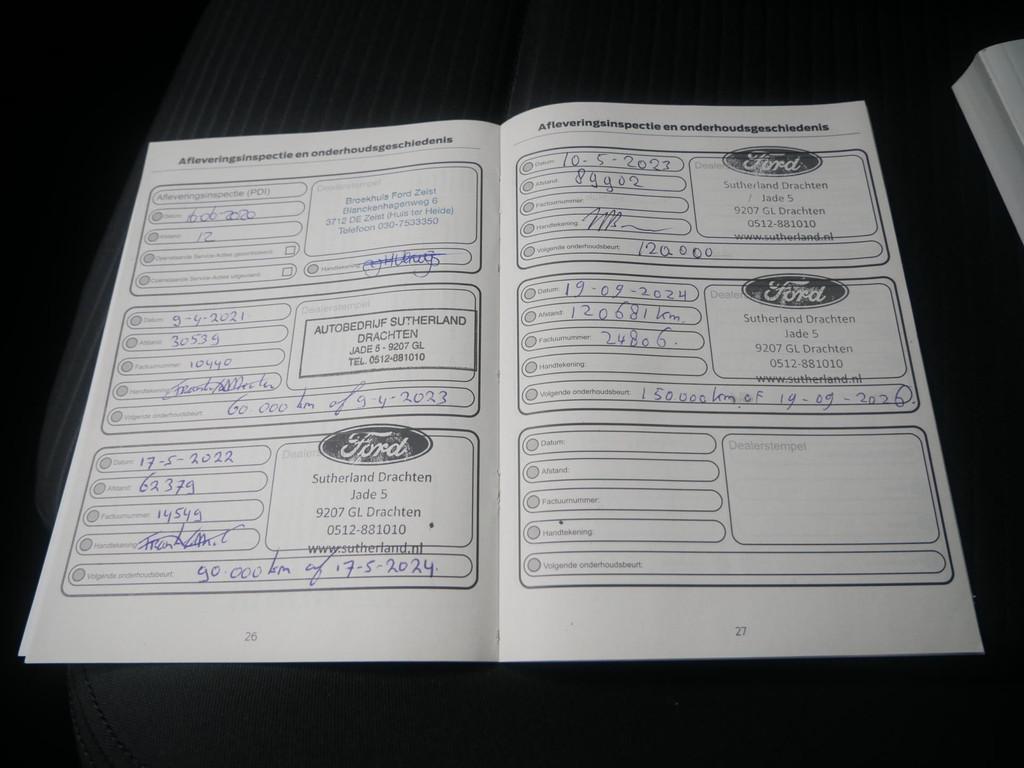 Afleveringsinspectie en onderhoudsgeschiedenis
Afleveringsinspectie (PDI)
Dealerstempel
Datum: 16-06-2020
Afstand: 12
Openstaande Service-Acties gecontroleerd:
Openstaande Service-Acties uitgevoerd:
Broekhuis Ford Zeist
Blanckenhagenweg 6
3712 DE Zeist (Huis ter Heide)
Telefoon 030-7533350
Handtekening:
Datum: 9-4-2021
Afstand: 30539
Factuurnummer: 10440
Handtekening:
Dealerstempel
AUTOBEDRIJF SUTHERLAND
DRACHTEN
JADE 5 - 9207 GL
TEL. 0512-881010
Volgende onderhoudsbeurt: 60.000 km of 9-4-2023
Datum: 17-5-2022
Afstand: 62379
Factuurnummer: 14549
Handtekening:
Ford
Sutherland Drachten
Jade 5
9207 GL Drachten
0512-881010
www.sutherland.nl
Volgende onderhoudsbeurt: 90.000 km of 17-5-2024.
26
Afleveringsinspectie en onderhoudsgeschiedenis
Datum: 10-5-2023
Afstand: 89902
Factuurnummer:
Handtekening:
Ford
Sutherland Drachten
Jade 5
9207 GL Drachten
0512-881010
www.sutherland.nl
Volgende onderhoudsbeurt: 120.000
Datum: 19-09-2024
Afstand: 120681 km.
Factuurnummer: 24806.
Handtekening:
Ford
Sutherland Drachten
Jade 5
9207 GL Drachten
0512-881010
www.sutherland.nl
Volgende onderhoudsbeurt: 150.000 km of 19-09-2026.
Datum:
Afstand:
Factuurnummer:
Handtekening:
Dealerstempel
Volgende onderhoudsbeurt:
27